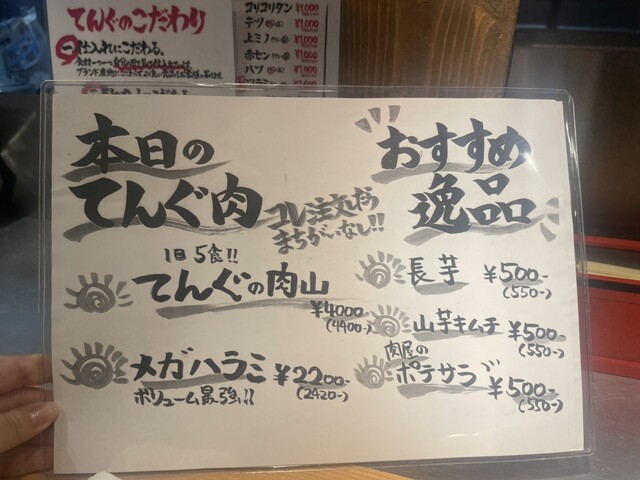 てんぐのこだわり
仕入れにこだわる。
コリコリタン ¥1,000
テツ ¥1,000
上ミノ ¥1,000
赤セン ¥1,000
ハツ ¥1,000
本日の
てんぐ肉
コレ注文だら
まちがいなし!!
1日5食!!
てんぐの肉山
¥4000
(4400-)
メガハラミ ¥2200-
(2420-)
ボリューム最強!!
おすすめ
逸品
長芋 ¥500-
(550-)
山芋キムチ ¥500-
(550-)
肉屋の
ポテサラ ¥500-
(550-)